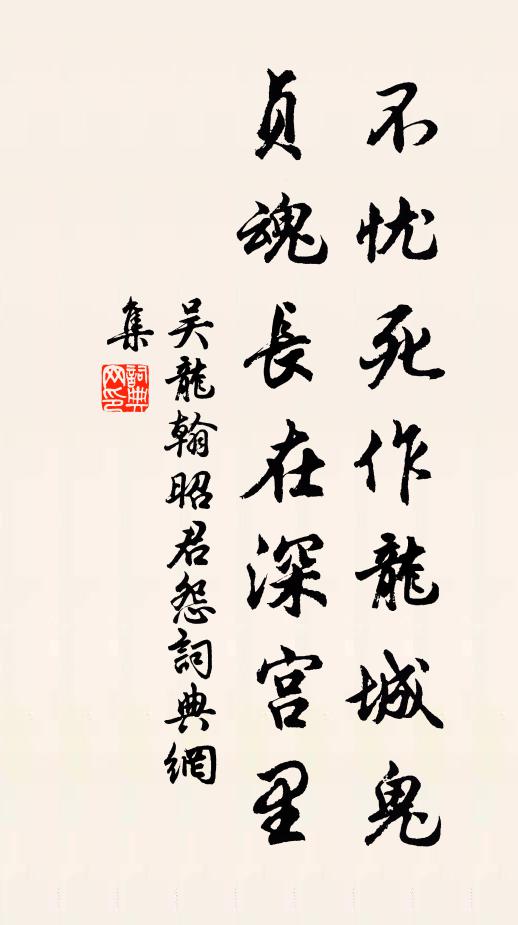 不忧死作龍城鬼
貞魂長在深宫里
吴龍翰昭君怨詞典網
集
詞典
网印